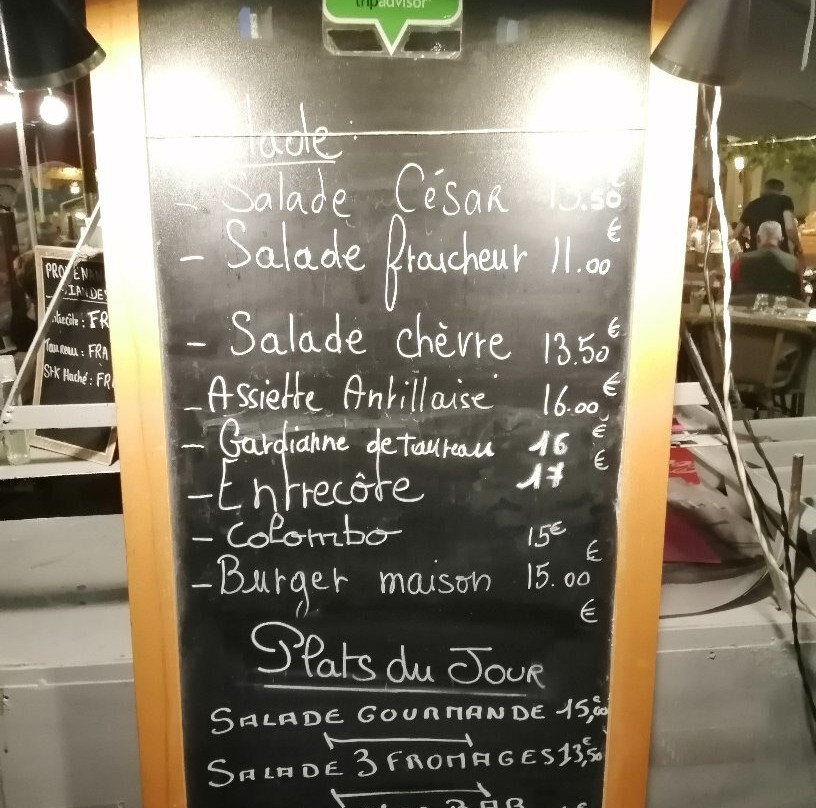 tripadvisor
Salade César 13.50
- Salade fraîcheur 11.00 €
- Salade chèvre 13.50 €
- Assiette Antillaise 16.00 €
- Gardianne de taureau 16 €
- Entrecôte 17 €
- Colombo 15€
- Burger maison 15.00 €
€
Plats du Jour
SALADE GOURMANDE 15,00 €
SALADE 3 FROMAGES 13,50 €
Entrecôte : FR
Taureau : FRA
Stk Haché : FR